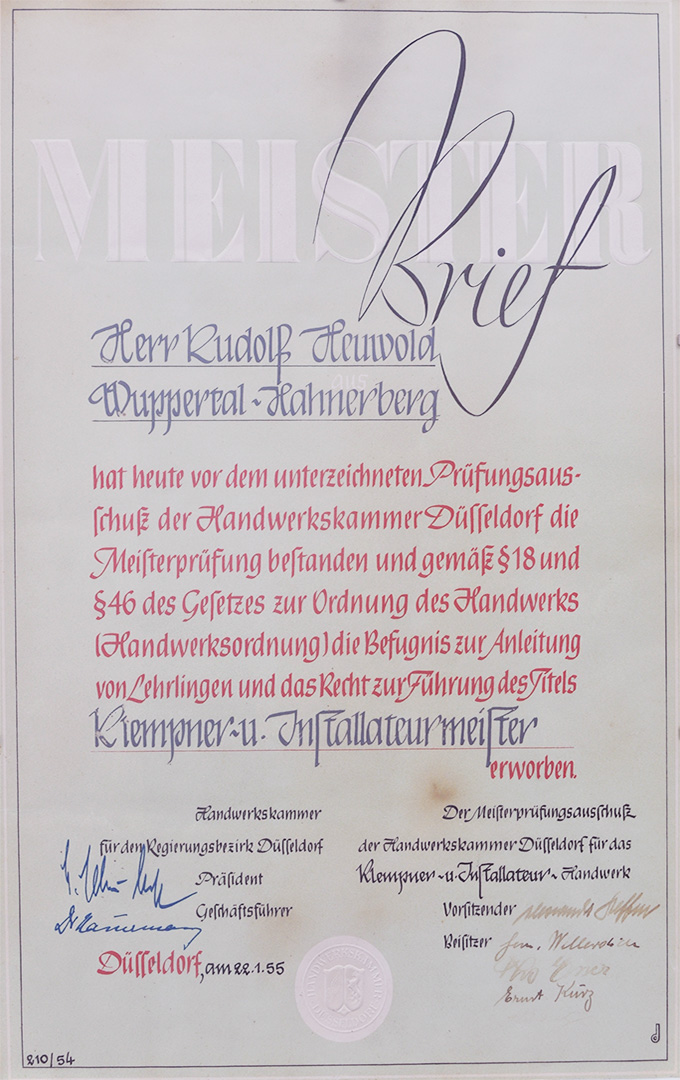 MEISTER
Brief
Herr Rudolf Heuwold
aus
Wuppertal-Hahnerberg
hat heute vor dem unterzeichneten Prüfungsaus-
ſchuß der Handwerkskammer Düſſeldorf die
Meiſterprüfung beſtanden und gemäß § 18 und
§ 46 des Geſetzes zur Ordnung des Handwerks
(Handwerksordnung) die Befugnis zur Anleitung
von Lehrlingen und das Recht zur Führung des Titels
Klempner-u. Inſtallateurmeiſter
erworben.
Handwerkskammer
für den Regierungsbezirk Düſſeldorf
Präſident
Geſchäftsführer
Düſſeldorf, am 22.1.55
Der Meiſterprüfungsausſchuß
der Handwerkskammer Düſſeldorf für das
Klempner-u. Inſtallateur-Handwerk
Vorſitzender
Beiſitzer
Ernst Kurz
210/54